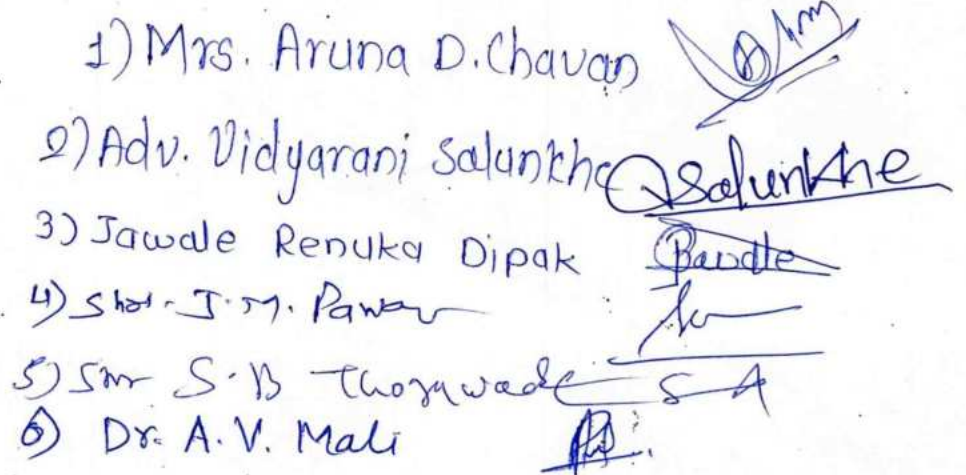 1) Mrs. Aruna D. Chavan
2) Adv. Vidyarani Salunkhe Salunkhe
3) Jawale Renuka Dipak Jawale
4) J. M. Pawar
5) S. B Thorawade
6) Dr. A. V. Mali